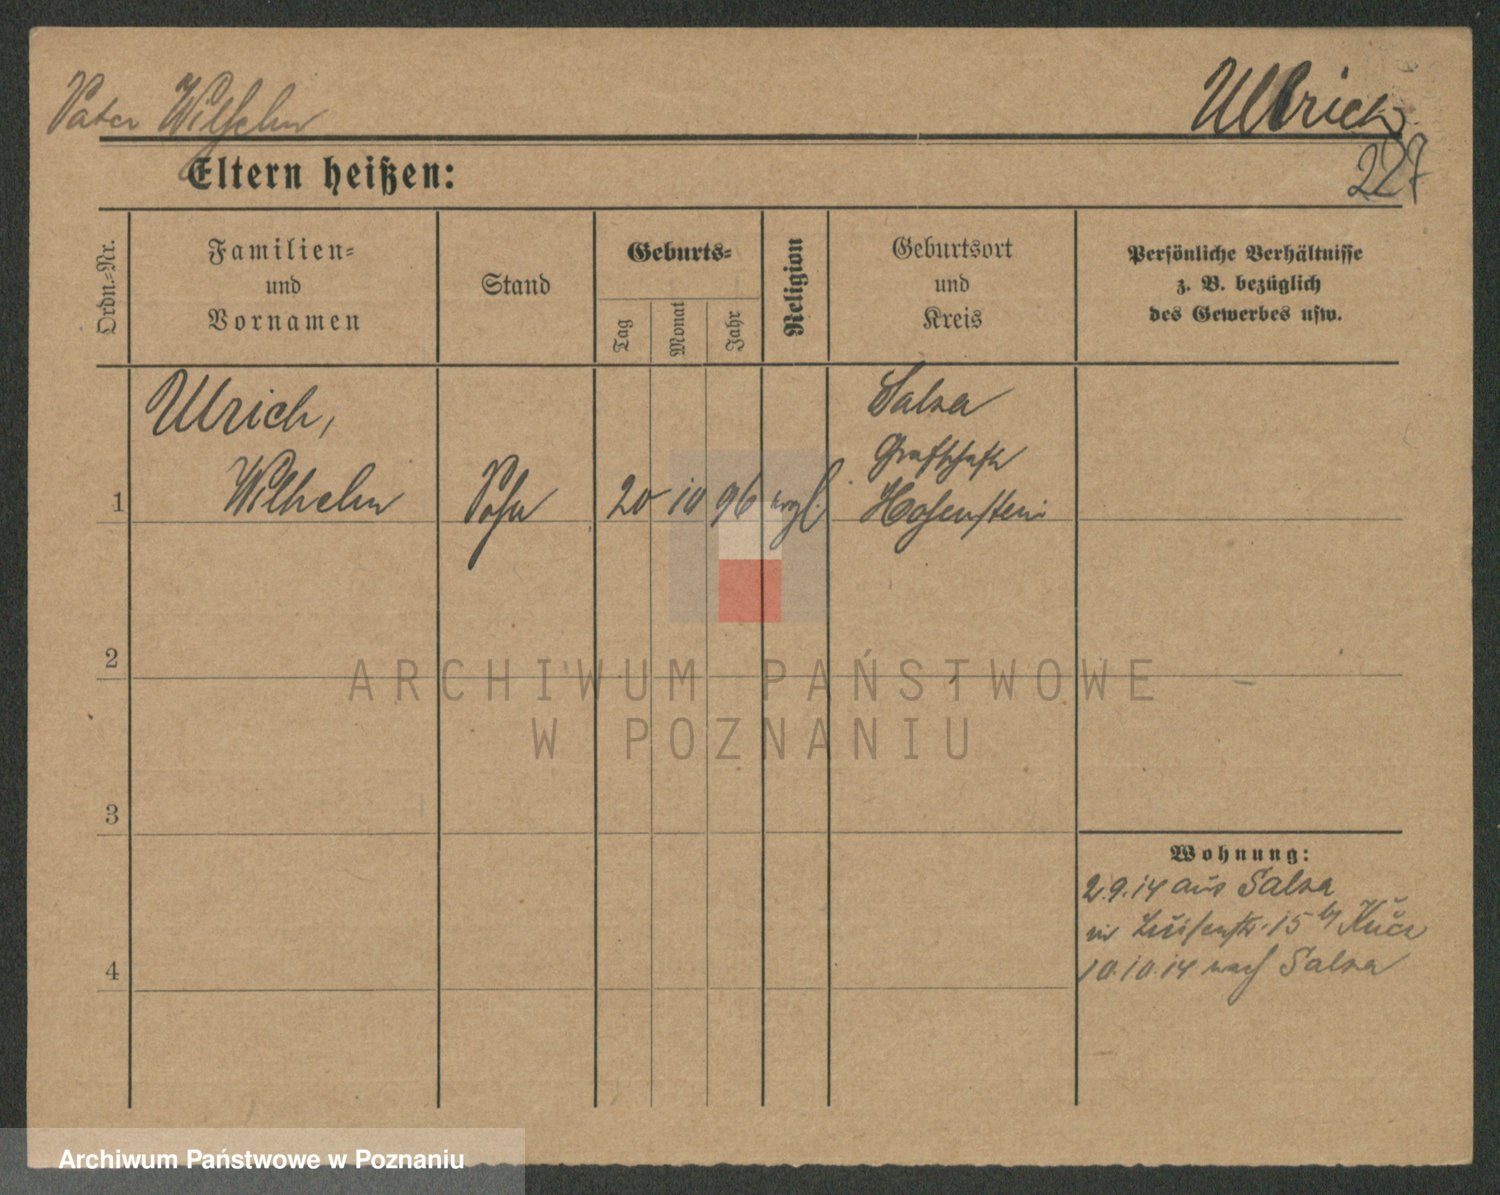 Vater Wilhelm
Ullrich
227
Eltern heißen:
Ordn.-Nr.
Familien-
und
Vornamen
Stand
Geburts-
Tag
Monat
Jahr
Religion
Geburtsort
und
Kreis
Persönliche Verhältnisse
z. B. bezüglich
des Gewerbes usw.
Ulrich,
Wilhelm
1
Sohn
20
10
96
evgl.
Salza
Grafschaft
Hohenstein
2
3
4
ARCHIWUM PAŃSTWOWE
W POZNANIU
Wohnung:
2.9.14 aus Salza
Luisenstr. 15 b/
10.10.14 nach Salza
Archiwum Państwowe w Poznaniu